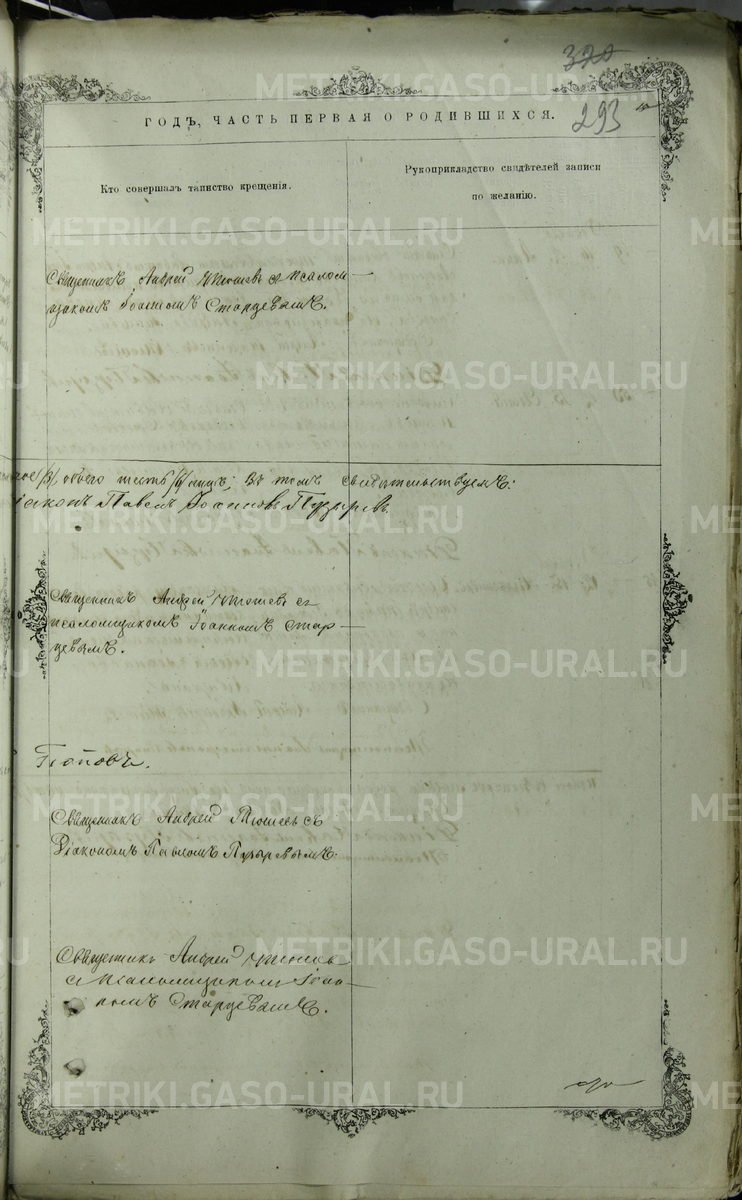 320
293
ГОДЪ, ЧАСТЬ ПЕРВАЯ О РОДИВШИХСЯ.
Кто совершалъ таинство крещенія.
Рукоприкладство свидѣтелей записи
по желанію.
Священникъ Андрей съ псалом
Іоанномъ Старцевымъ.
обоего шесть /6/ лицъ; въ томъ свидѣтельствуемъ:
Павелъ Іоанновъ Пузыревъ.
Священникъ Андрей съ
псаломщикомъ Іоанномъ Стар-
цевымъ.
Поповъ.
Священникъ Андрей съ
Діакономъ Павломъ Пузыревымъ.
Священникъ Андрей
съ псаломщикомъ Іоан-
номъ Старцевымъ.
METRIKI.GASO-URAL.RU